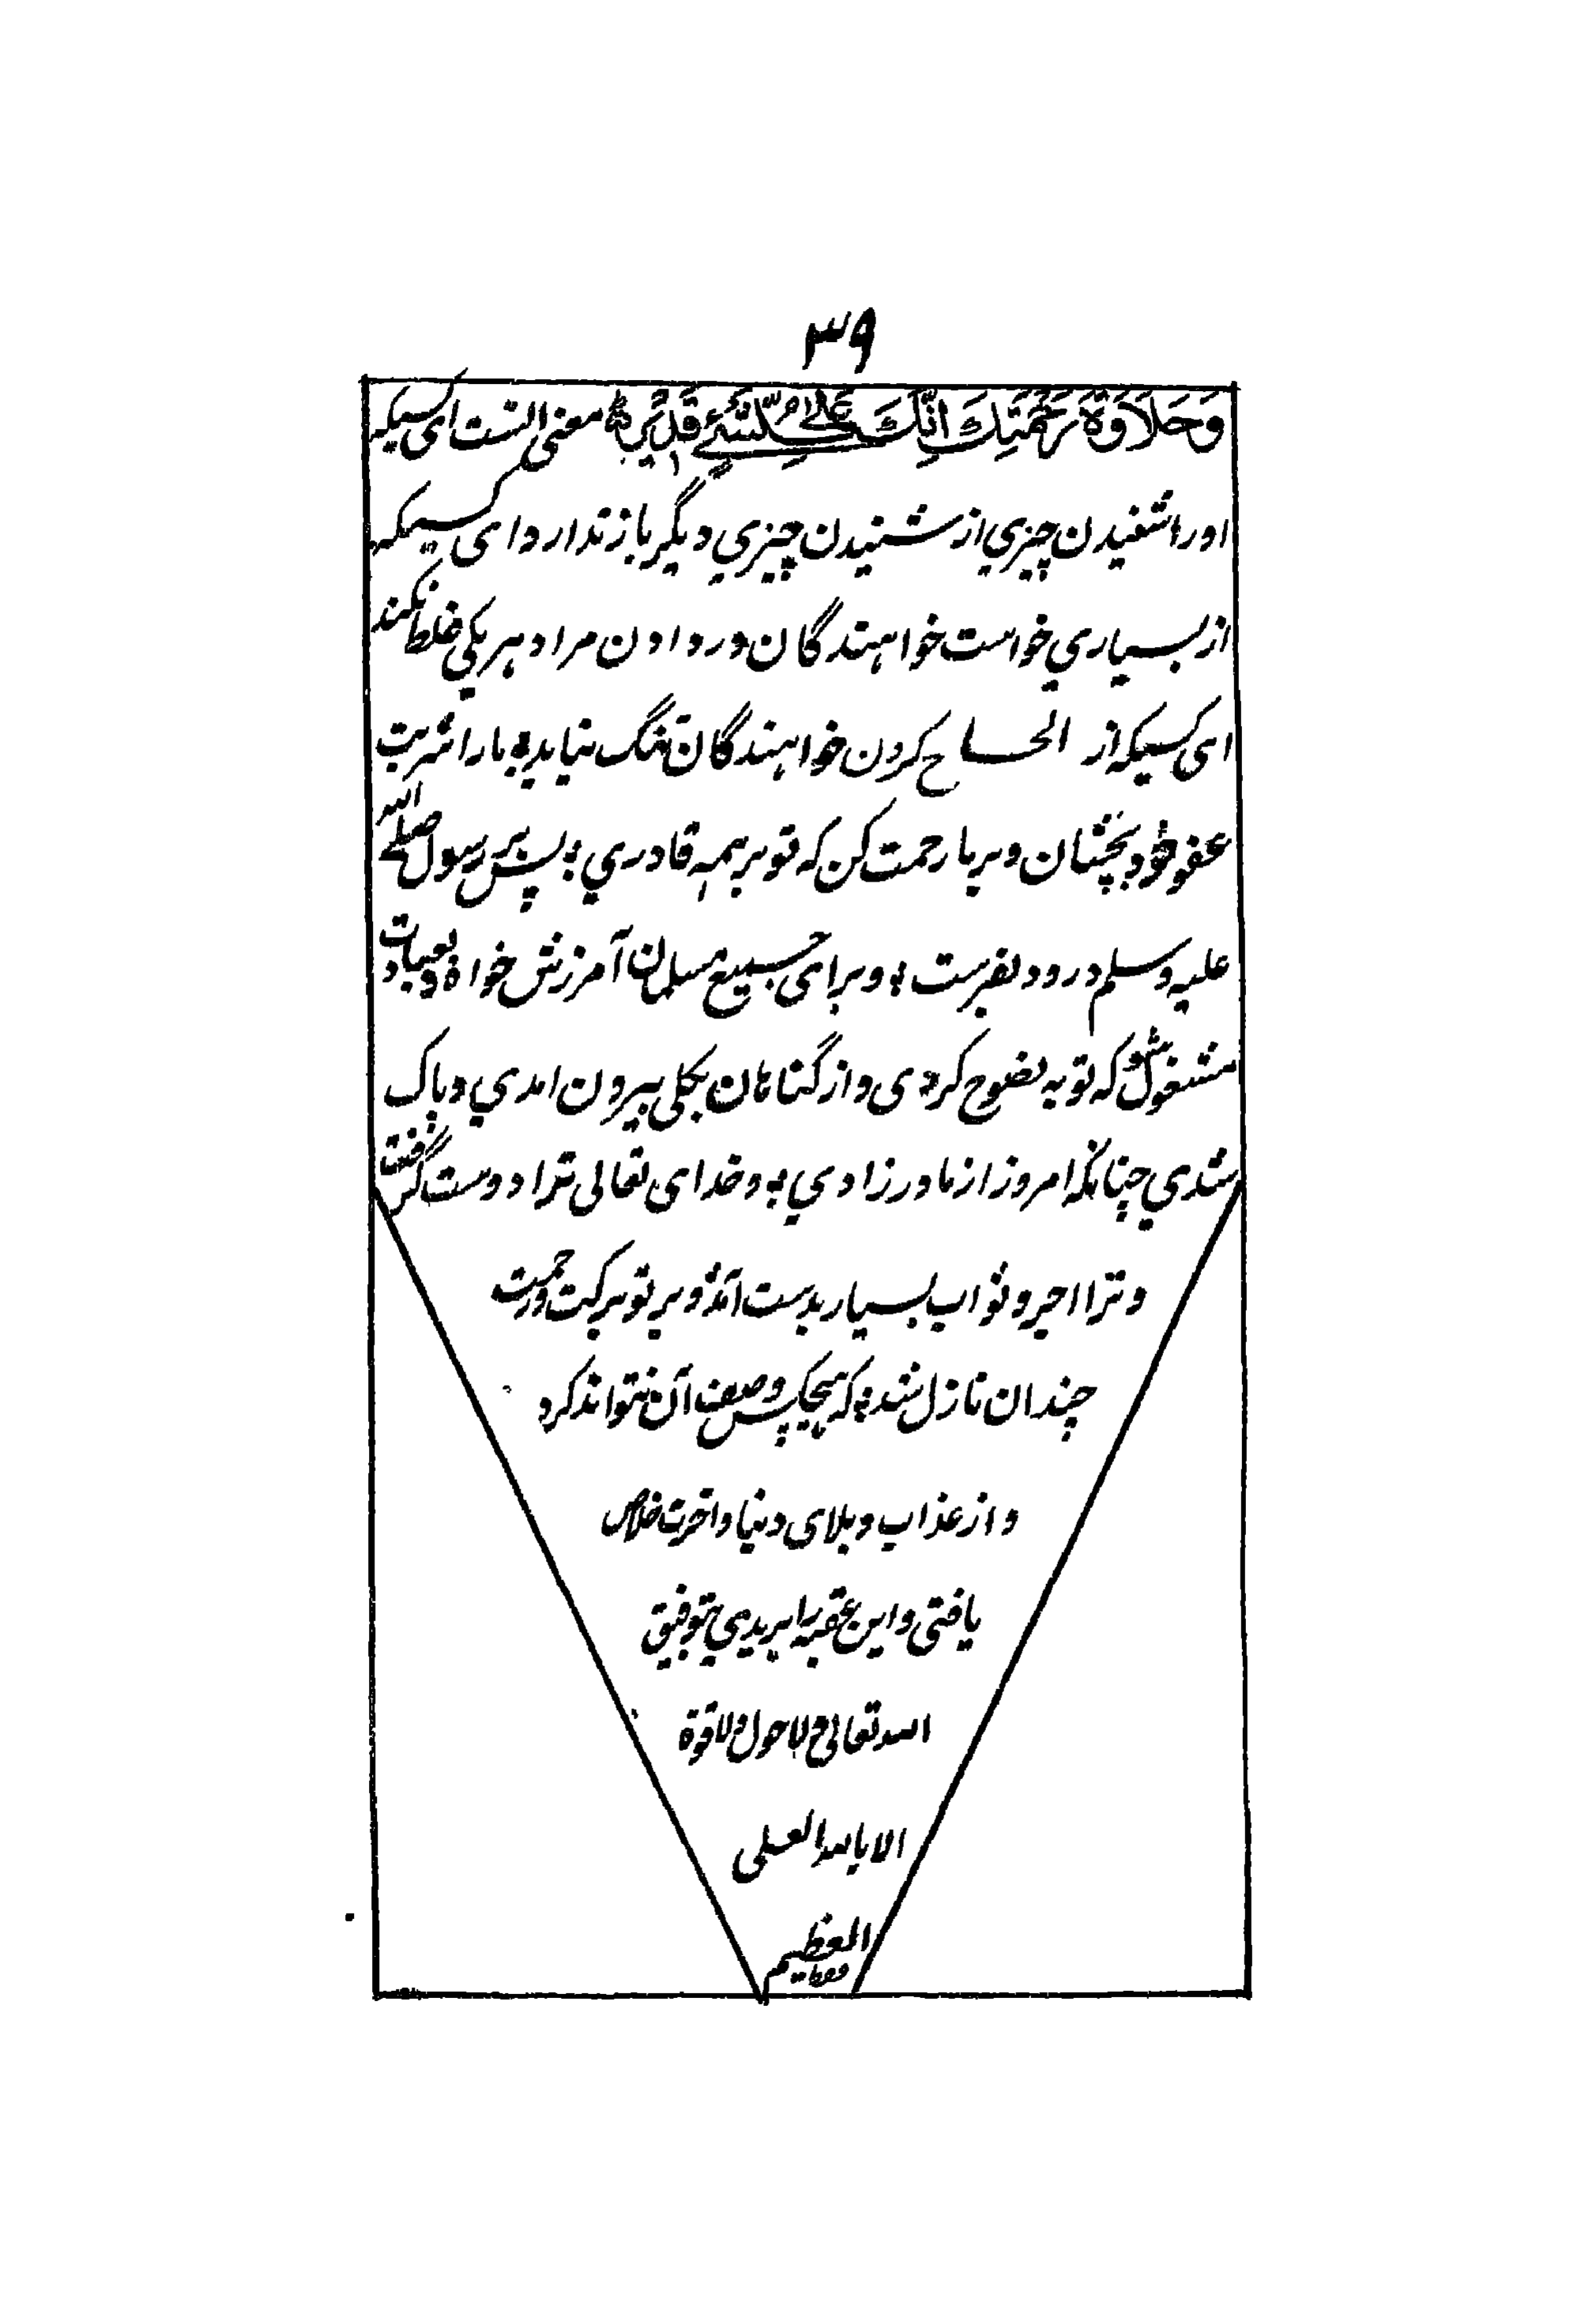 ۳۹
وَحَلَاوَةَ رَحْمَتِكَ اِنَّكَ عَلٰى كُلِّ شَيْءٍ قَدِيْرٌ معنی انست ای کسیکه
اورا شنیدن چیزي از شنیدن چیزي دیگر باز ندارد و ای کسیکه
از بسیاري خواست خواهندگان در دادن مراد هر یکی غلط نکند
ای کسیکه از الحاح کردن خواهندگان تنگ نیاید ما را شربت
عفو خود بچشان و بر ما رحمت کن که تو بر همه قادري پس بر رسول صلے الله
علیه وسلم درود بفرست و برای جمیع مسلمانان آمرزش خواه و بعبادت
مشغول شو که توبه نصوح کردی و از گناهان بکلی بیرون امدي و پاک
شدي چنانکه امروز از مادر زادي و خدای تعالی ترا دوست گرفت
و ترا اجر و ثواب بسیار بدست آمد و بر تو برکت و رحمت
چندان نازل شد که هیچکس وصف آن نتواند کرد
و از عذاب و بلای دنیا و اخرت خلاص
یافتی و این عقبه را بریدي بتوفیق
الله تعالی و لا حول و لا قوة
الا بالله العلی
العظیم